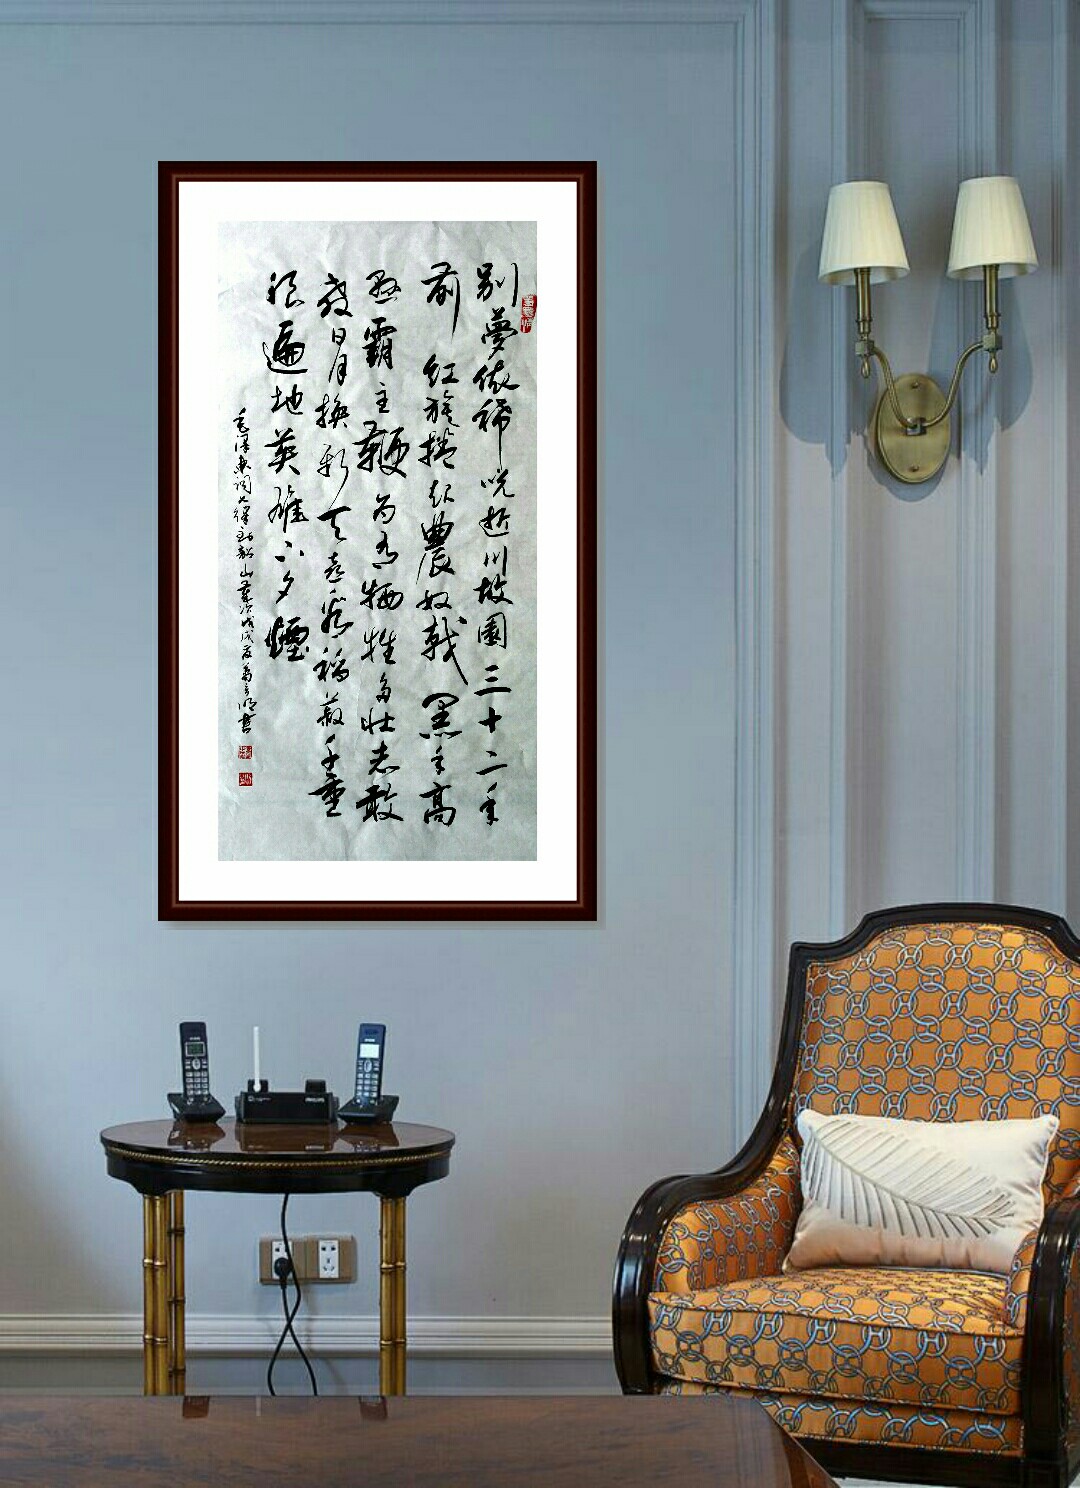 别夢依稀咒逝川故園三十二年
前红旗捲起農奴戟黑手高
悬霸主鞭为有牺牲多壮志敢
教日月换新天喜看稻菽千重
浪遍地英雄下夕煙
毛泽东词七律到韶山歲次戊戌夏书
PHILIPS